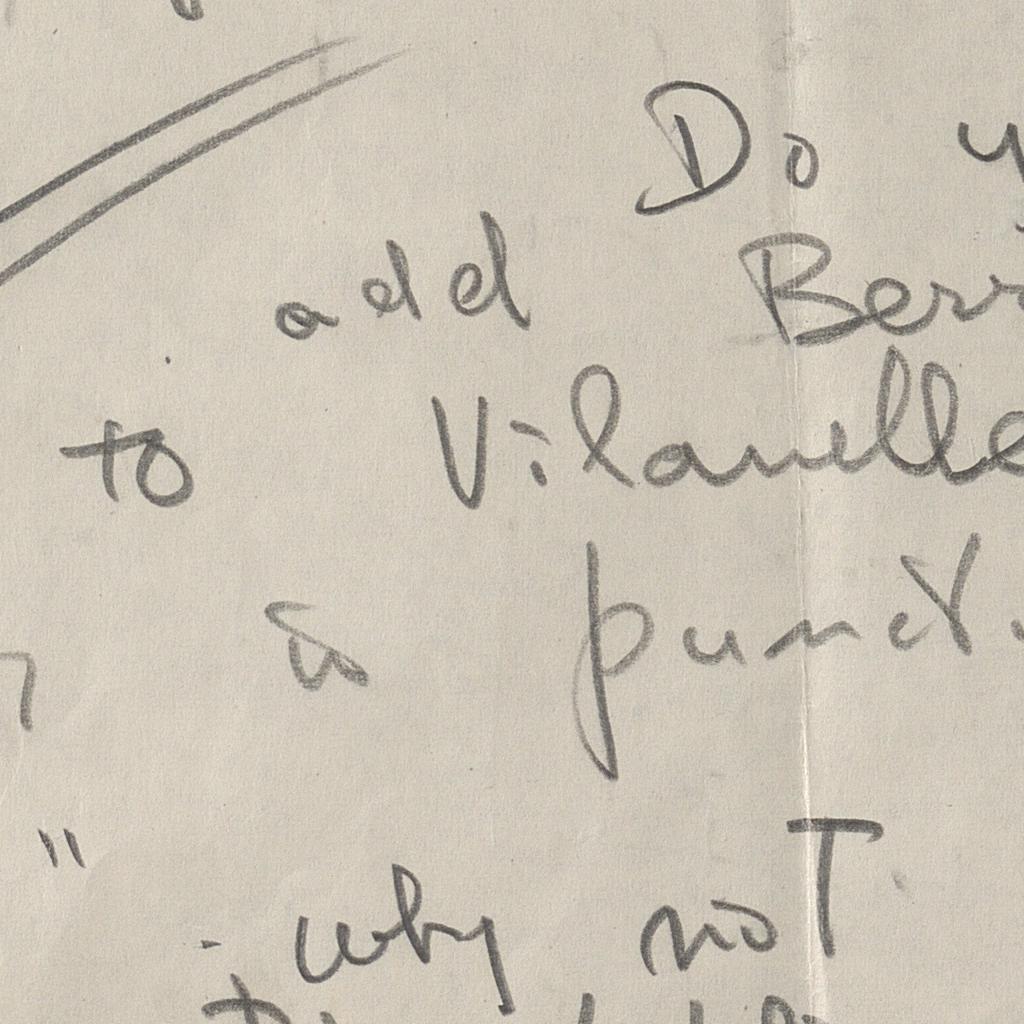 Do
add Berr
to Vilanelle
is punct.
"
: why not